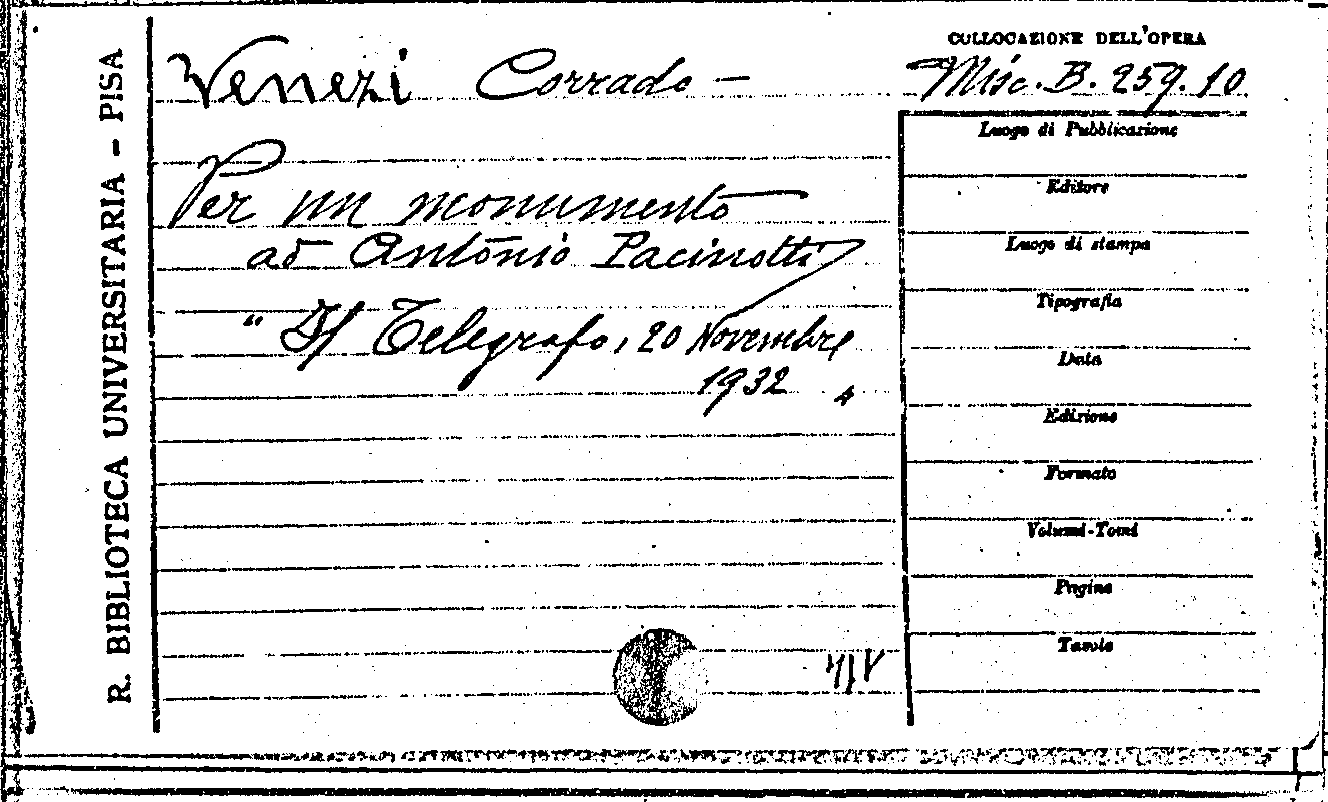 R. BIBLIOTECA UNIVERSITARIA - PISA
Venezi Corrado -
Per un monumento
ad Antonio Pacinotti
" Il Telegrafo, 20 Novembre
1932 "
COLLOCAZIONE DELL'OPERA
Misc. B. 259. 10
Luogo di Pubblicazione
Editore
Luogo di stampa
Tipografia
Data
Edizione
Formato
Volumi-Tomi
Pagine
Tavole